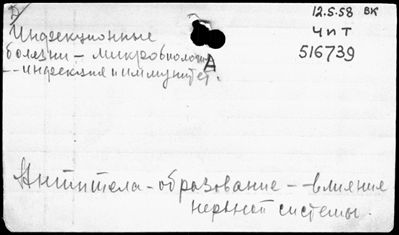 12.5.58 ВК
Инфекционные
Чит
болезни – микробиология
А
516739
– инфекция и иммунитет.
Антитела – образование – влияние
нервной системы.